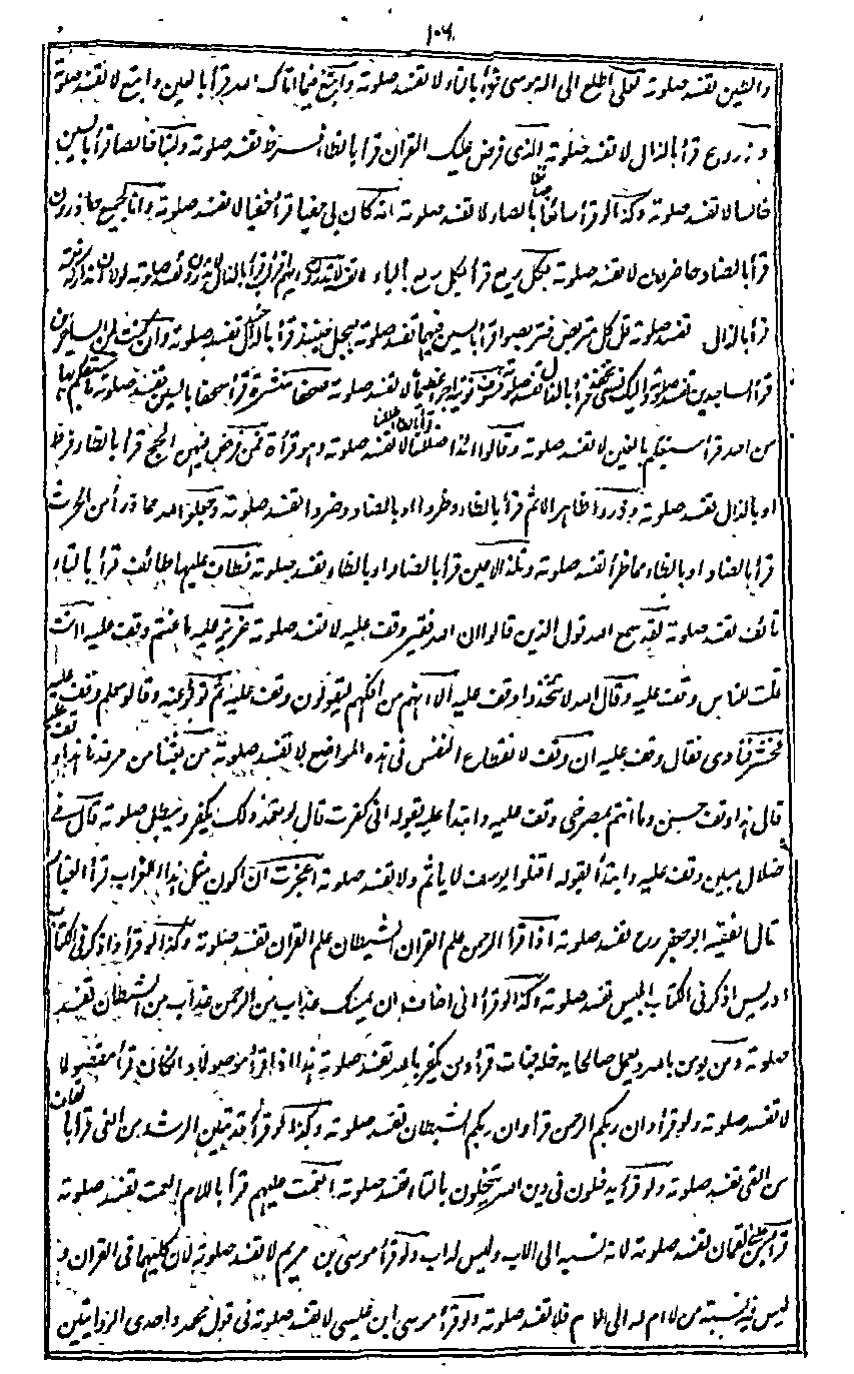 ١٠٦
والشين تفسد صلوته لعلى اطلع الى اله موسى قرأ بالتاء لا تفسد صلوته وابتغ فيما اتاك الله قرأ بالعين وابتع لا تفسد صلوته
وزروع قرأ بالذال لا تفسد صلوته الذى فرض عليك القران قرأ بالظاء تفسد صلوته ولبنا خالصا قرأ بالسين
خالسا لا تفسد صلوته وكذا لو قرأ سائغا بالصاد لا تفسد صلوته انه كان بى حفيا قرأ خفيا لا تفسد صلوته وانا لجميع حاذرون
قرأ بالضاد حاضرون لا تفسد صلوته بكل ريع قرأ لكل ريع بالياء لولا ان تداركه نعمة
قرأ بالذال تفسد صلوته قل كل متربص فتربصوا قرأ بالسين فيهما تفسد صلوته بعجل حنيذ قرأ بالدال تفسد صلوته وان كنت لمن الساخرين
قرأ الساجدين تفسد صلوته لا تفسد صلوته صحفا منشرة قرأ سحفا بالسين تفسد صلوته
من الله قرأ بالغين لا تفسد صلوته وقالوا ائذا ضللنا لا تفسد صلوته وهو قرأة فمن فرض فيهن الحج قرأ بالظاء فرظ
او بالذال تفسد صلوته وذروا ظاهر الاثم قرأ بالظاء وظروا او بالضاد وضروا تفسد صلوته وجعلوا لله مما ذرأ من الحرث
قرأ بالضاد او بالظاء مما ظرأ تفسد صلوته وتلذ الاعين قرأ بالضاد او بالظاء تفسد صلوته فطاف عليها طائف قرأ بالتاء
تائف تفسد صلوته لقد سمع الله قول الذين قالوا ان الله فقير وقف عليه لا تفسد صلوته عزيز عليه ما عنتم وقف عليه اانت
قلت للناس وقف عليه وقال الله لا تتخذوا وقف عليه الا انهم من افكهم ليقولون وقف عليه ثم تولوا عنه وقالوا معلم وقف عليه
فحشر فنادى فقال وقف عليه ان وقف لانقطاع النفس فى هذه المواضع لا تفسد صلوته من بعثنا من مرقدنا هذا وقف عليه
قال هذا وقف حسن وما انتم بمصرخى وقف عليه وابتدأ عليه بقوله انى كفرت قال لو تعمد ذلك يكفر وتبطل صلوته قال فى
ضلال مبين وقف عليه وابتدأ بقوله اقتلوا يوسف لا ياثم ولا تفسد صلوته اعجزت ان اكون مثل هذا الغراب قرأ الغبار
قال الفقيه ابو جعفر رح تفسد صلوته اذا قرأ الرحمن علم القران الشيطان علم القران تفسد صلوته وكذا لو قرأ واذكر فى الكتاب
ادريس اذكر فى الكتاب ابليس تفسد صلوته وكذا لو قرأ انى اخاف ان يمسك عذاب من الرحمن عذاب من الشيطان تفسد
صلوته ومن يومن بالله ويعمل صالحا يدخله جنات قرأ ومن يكفر بالله تفسد صلوته هذا اذا قرأ موصولا وان كان قرأ مفصولا
لا تفسد صلوته ولو قرأ وان ربكم الرحمن قرأ وان ربكم الشيطان تفسد صلوته وكذا لو قرأ قد تبين الرشد من الغى قرأ
من الغى تفسد صلوته ولو قرأ يدخلون فى دين الله يتخلون بالتاء تفسد صلوته انعمت عليهم قرأ باللام العمت تفسد صلوته
قرأ لقمان تفسد صلوته لانه نسبه الى الاب وليس له اب ولو قرأ موسى بن مريم لا تفسد صلوته لان كليهما فى القران و
ليس فيه نسبة من لا ام له الى الام فلا تفسد صلوته ولو قرأ موسى ابن عيسى لا تفسد صلوته فى قول محمد واحدى الروايتين